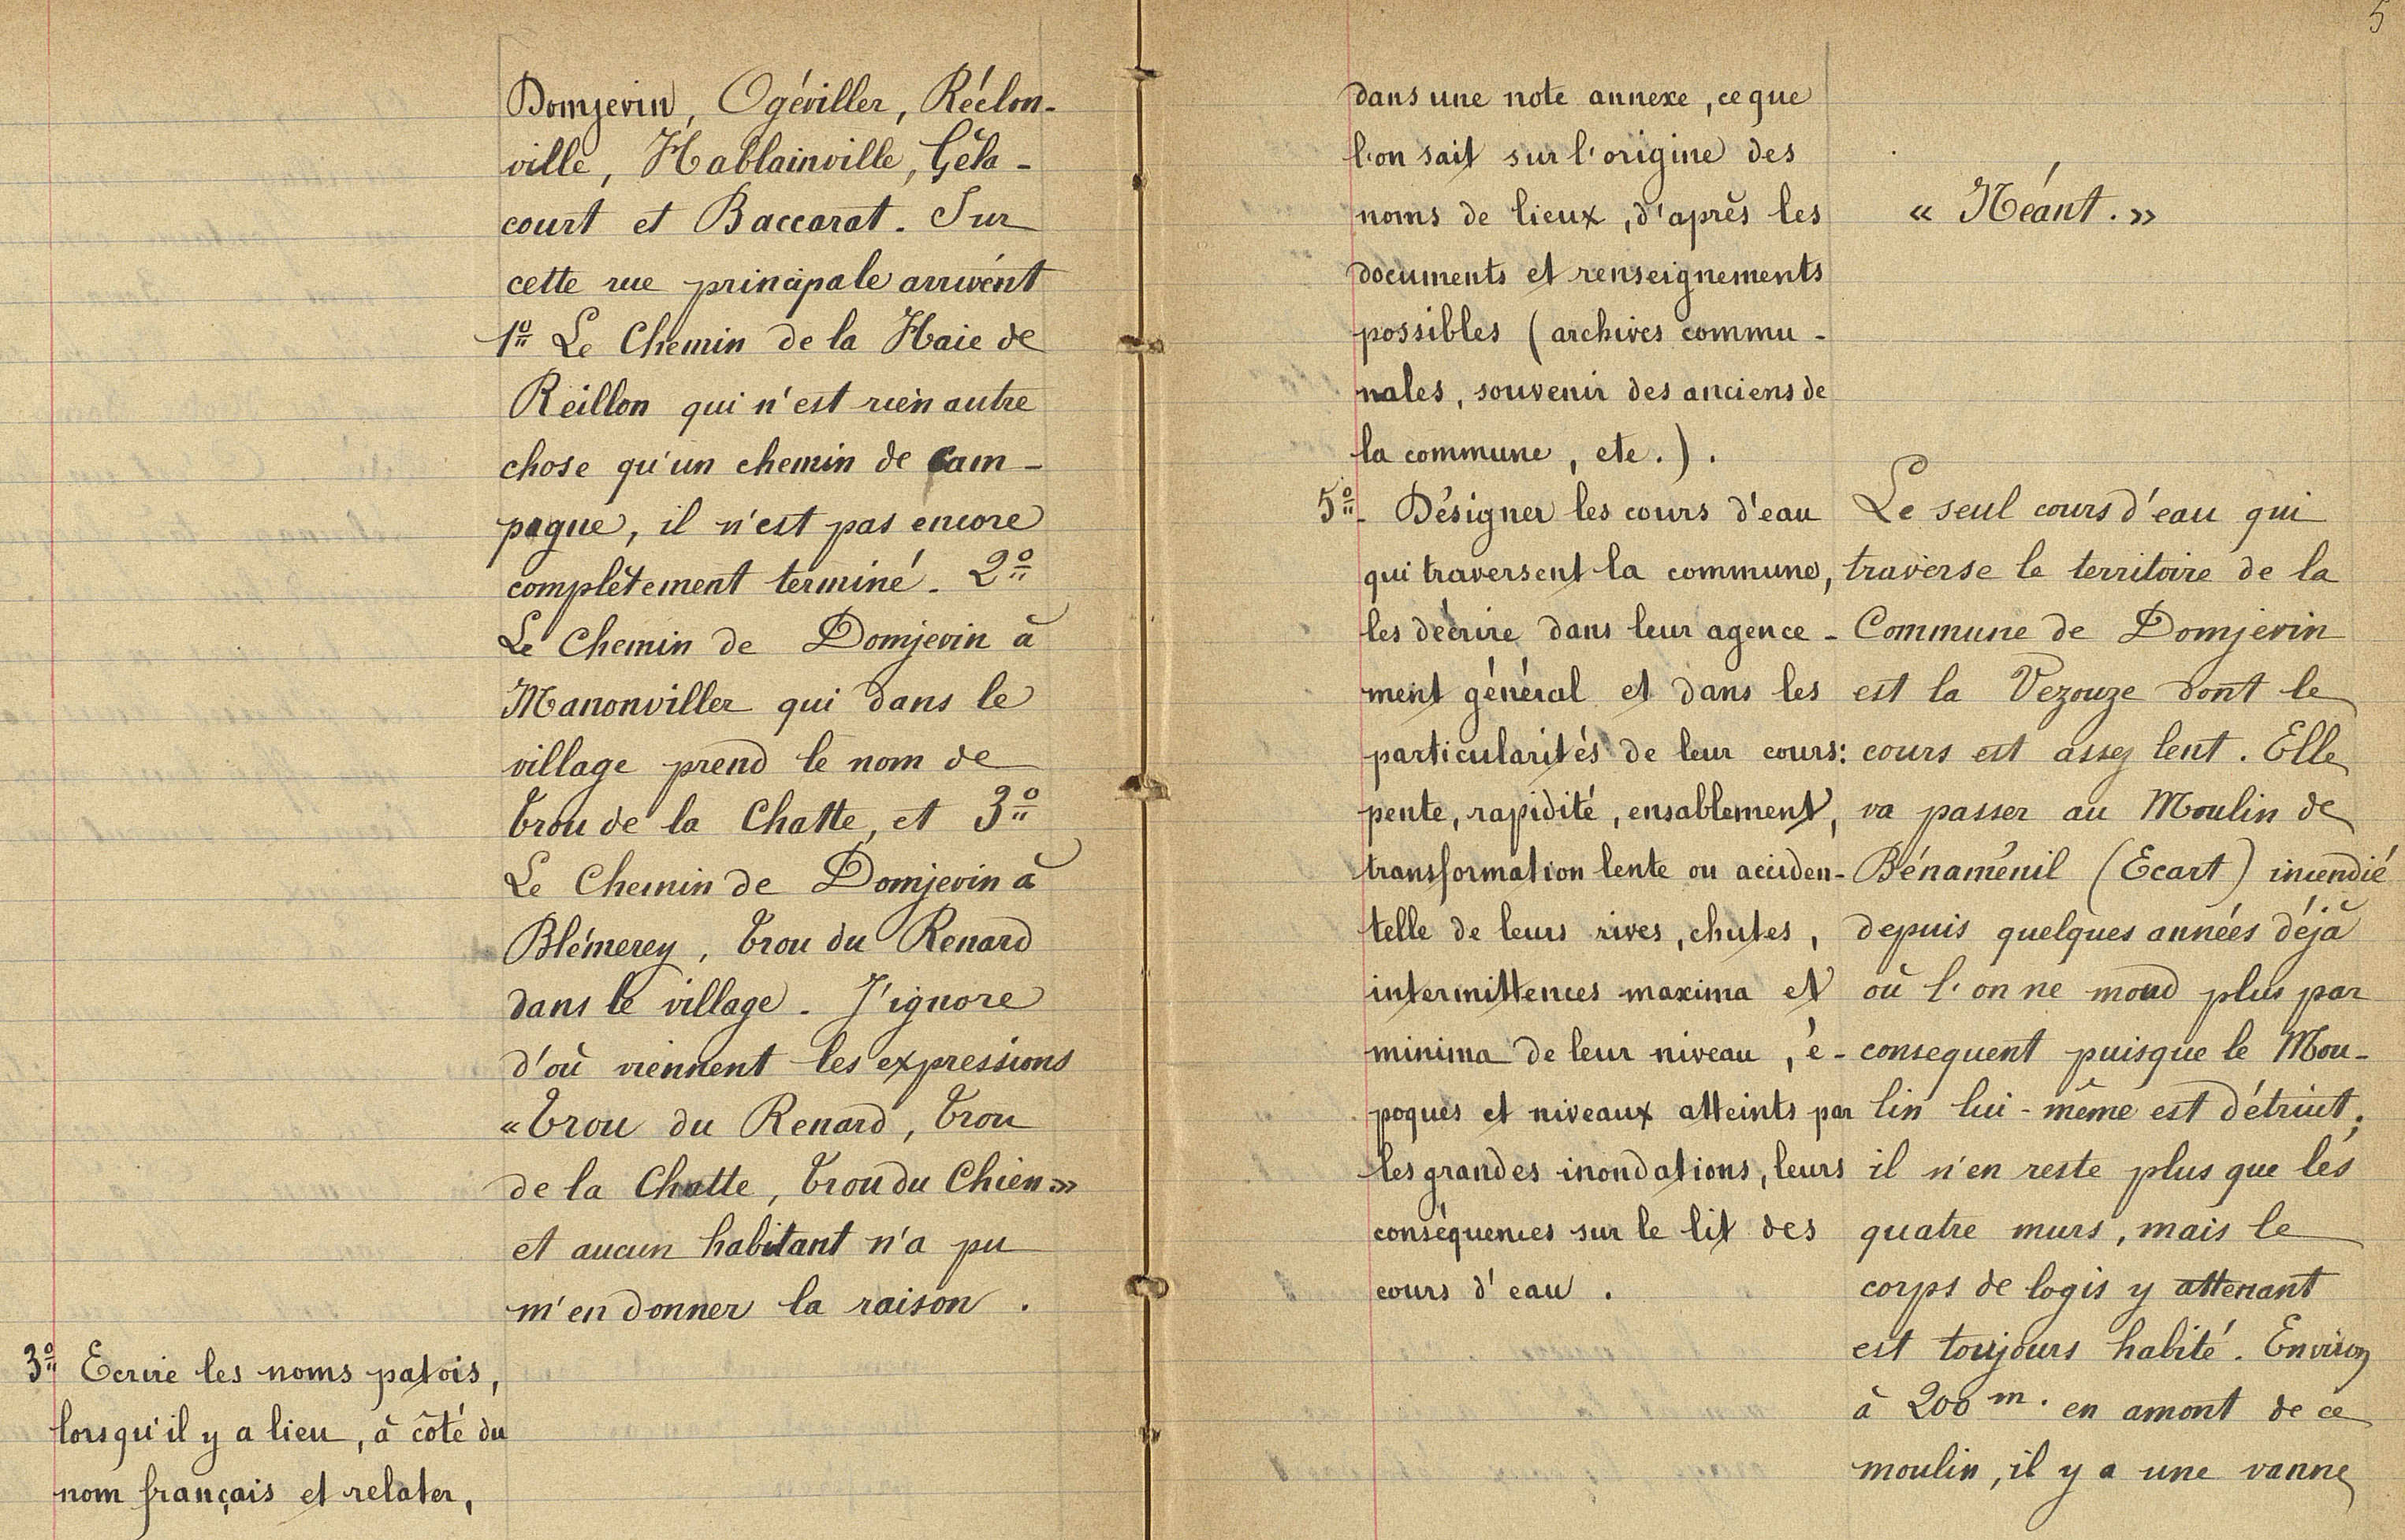 Domjevin, Ogéviller, Réclon-
ville, Hablainville, Géla-
court et Baccarat. Sur
cette rue principale arrivent
1º Le Chemin de la Haie de
Reillon qui n'est rien autre
chose qu'un chemin de cam-
pagne, il n'est pas encore
complètement terminé. 2º
Le Chemin de Domjevin à
Manonviller qui dans le
village prend le nom de
Trou de la Chatte, et 3º
Le Chemin de Domjevin à
Blémerey, Trou du Renard
dans le village. J'ignore
d'où viennent les expressions
« Trou du Renard, Trou
de la Chatte, Trou du Chien »
et aucun habitant n'a pu
m'en donner la raison.
3º Ecrire les noms patois,
lorsqu'il y a lieu, à côté du
nom français et relater,
5
dans une note annexe, ce que
l'on sait sur l'origine des
noms de lieux, d'après les
documents et renseignements
possibles (archives commu-
nales, souvenir des anciens de
la commune, etc.).
« Néant. »
5º- Désigner les cours d'eau
qui traversent la commune,
les décrire dans leur agence-
ment général et dans les
particularités de leur cours:
pente, rapidité, ensablement,
transformation lente ou acciden-
telle de leurs rives, chutes,
intermittences maxima et
minima de leur niveau, é-
poques et niveaux atteints par
les grandes inondations, leurs
conséquences sur le lit des
cours d'eau.
Le seul cours d'eau qui
traverse le territoire de la
Commune de Domjevin
est la Vezouze dont le
cours est assez lent. Elle
va passer au Moulin de
Bénaménil (Ecart) incendié
depuis quelques années déjà
où l'on ne moud plus par
consequent puisque le Mou-
lin lui-même est détruit;
il n'en reste plus que les
quatre murs, mais le
corps de logis y attenant
est toujours habité. Environ
à 200 m. en amont de ce
moulin, il y a une vanne